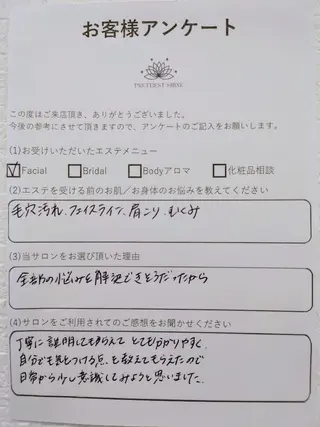 お客様アンケート
この度はご来店頂き、ありがとうございました。
今後の参考にさせて頂きますので、アンケートのご記入をお願いします。
(1)お受けいただいたエステメニュー
Facial Bridal Bodyアロマ 化粧品相談
(2)エステを受ける前のお肌／お身体のお悩みを教えてください
毛穴汚れ、フェイスライン、肩こり、むくみ
(3)当サロンをお選び頂いた理由
全部の悩みを解決できそうだったから
(4)サロンをご利用されてのご感想をお聞かせください
丁寧に説明してもらえて とても分かりやすく、
自分でも気をつける点も教えてもらえたので
日常から少し意識してみようと思いました。